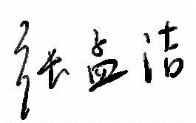 张孟洁